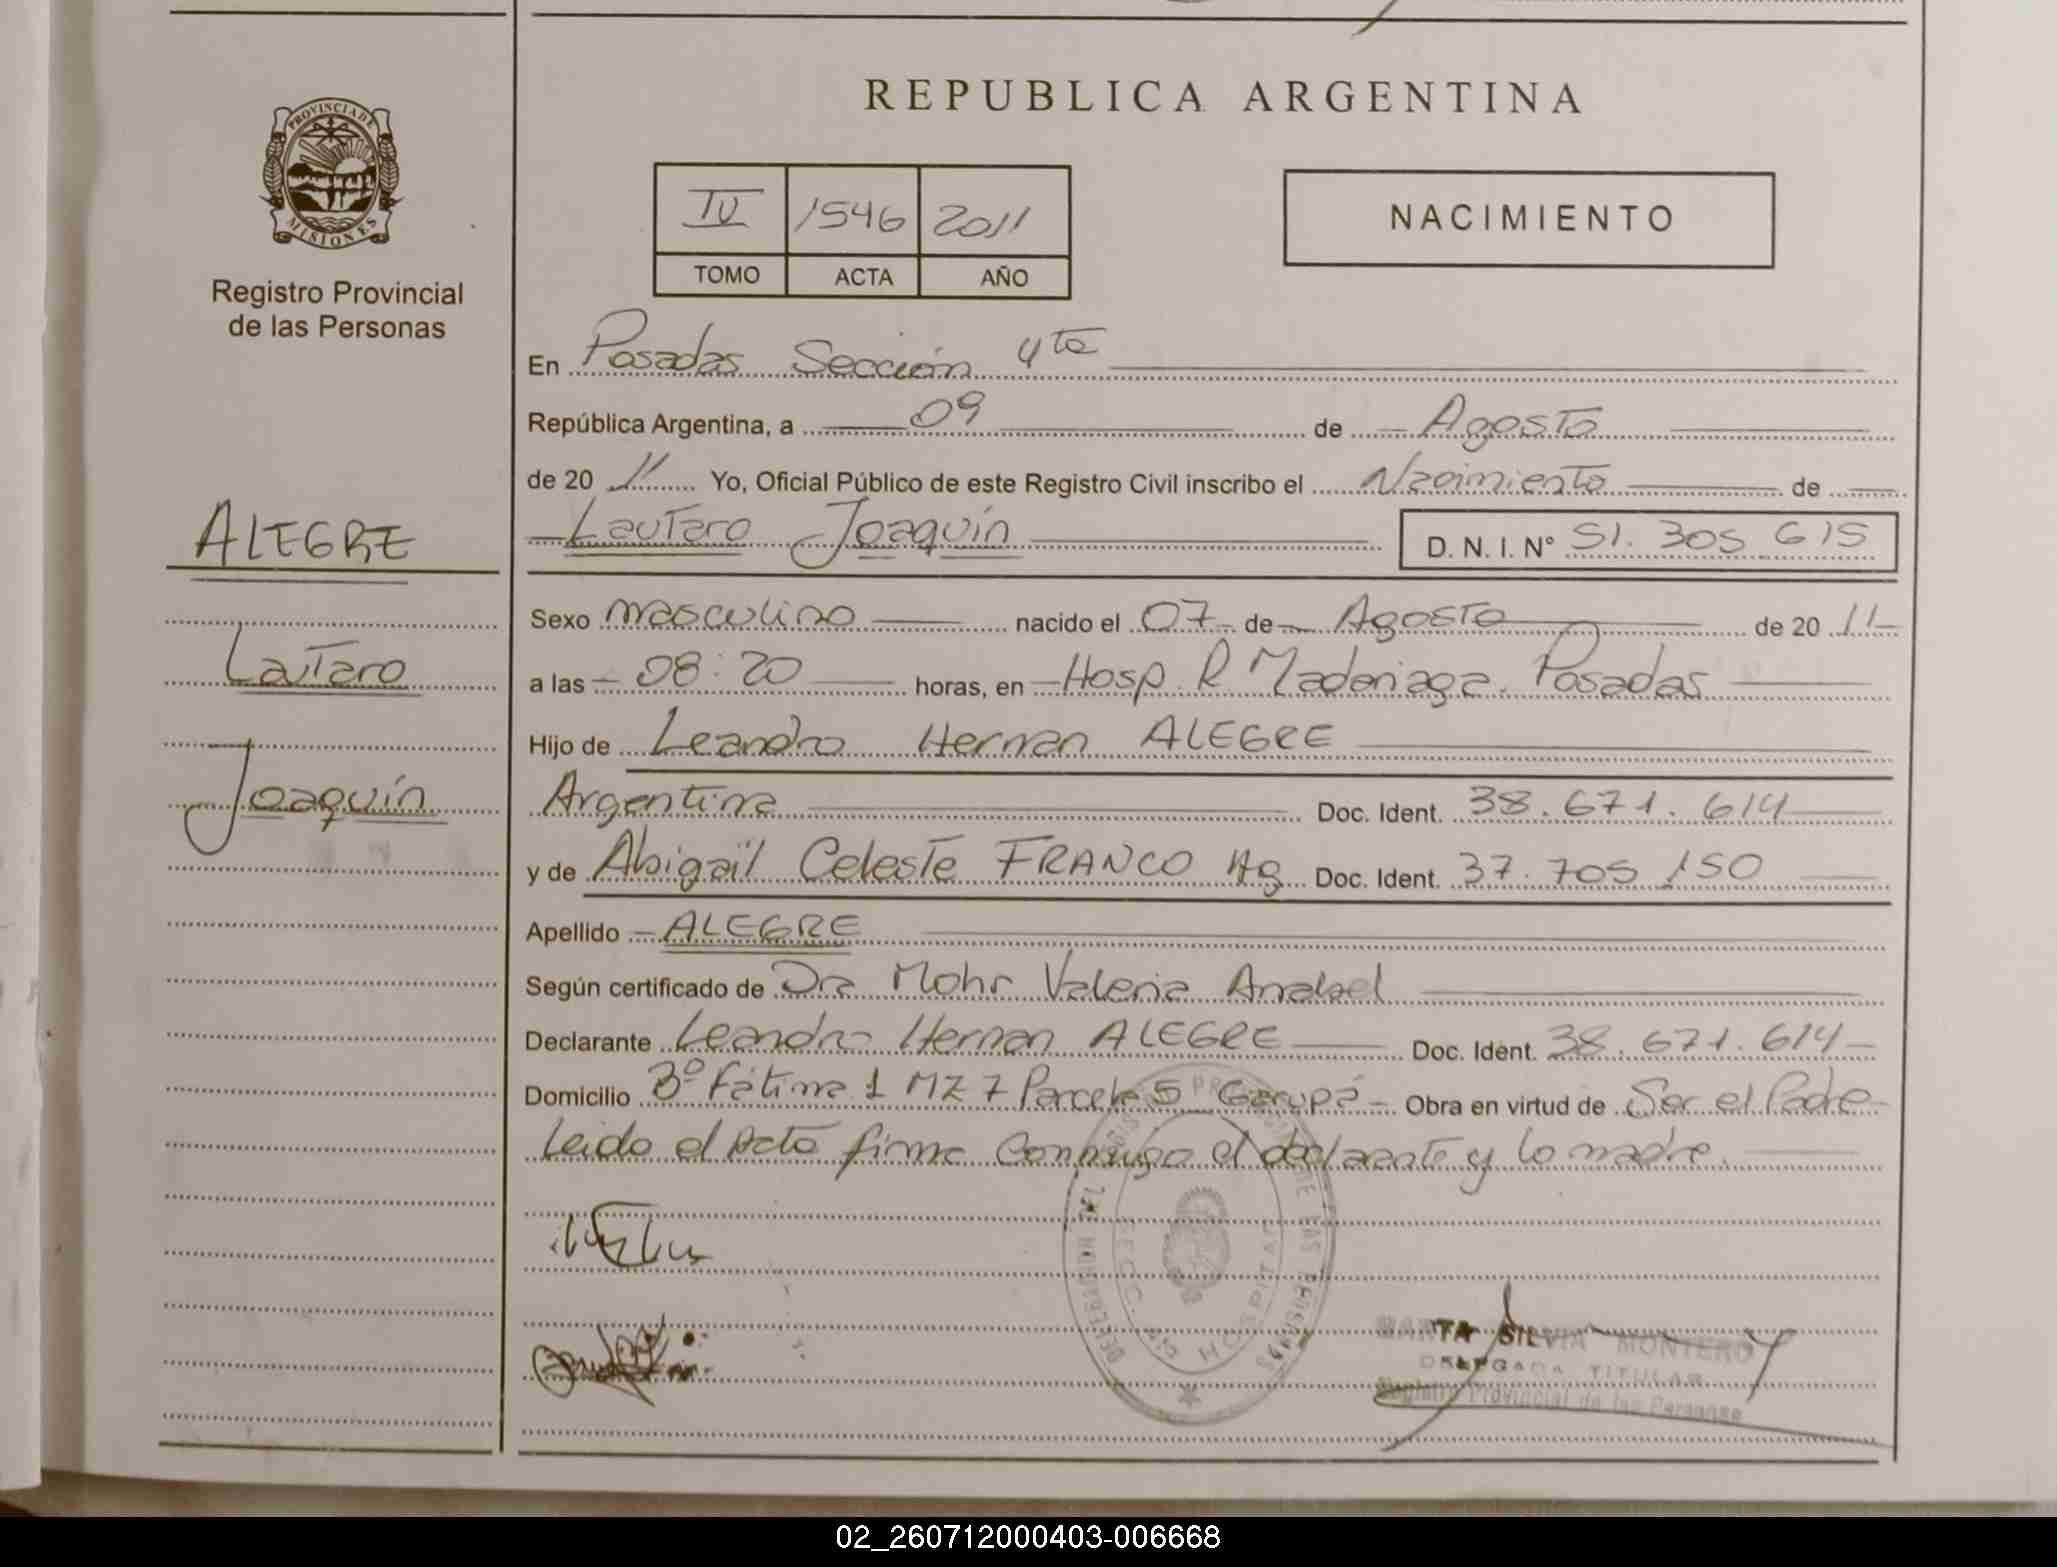 PROVINCIA DE
MISIONES
Registro Provincial
de las Personas
ALEGRE
Lautaro
Joaquín
REPUBLICA ARGENTINA
IV 1546 2011
TOMO ACTA AÑO
NACIMIENTO
En Posadas Sección 4ta
República Argentina, a 09 de Agosto
de 20 11 Yo, Oficial Público de este Registro Civil inscribo el Nacimiento de
Lautaro Joaquín D. N. I. N° 51.305.615
Sexo masculino nacido el 07 de Agosto de 20 11
a las 08:20 horas, en Hosp. R Madariaga. Posadas
Hijo de Leandro Hernan ALEGRE
Argentina Doc. Ident. 38.671.614
y de Abigaíl Celeste FRANCO Ag Doc. Ident. 37.705.150
Apellido ALEGRE
Según certificado de Dra Mohr Valeria Anabel
Declarante Leandro Hernan ALEGRE Doc. Ident. 38.671.614
Domicilio Bº Fátima 1 MZ 7 Parcela 5 Garupá Obra en virtud de Ser el Padre
Leido el Acta firma conmigo el declarante y la madre.
DELEGACION DEL REGISTRO PROVINCIAL DE LAS PERSONAS
SECC. 4ta HOSPITAL
MARTA SILVIA MONTERO
DELEGADA TITULAR
Registro Provincial de las Personas
02_260712000403-006668